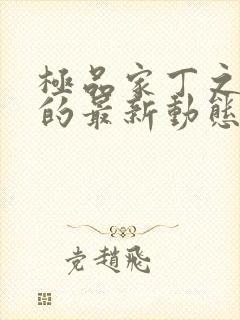 極品家丁之
的最新動態
党趙飛